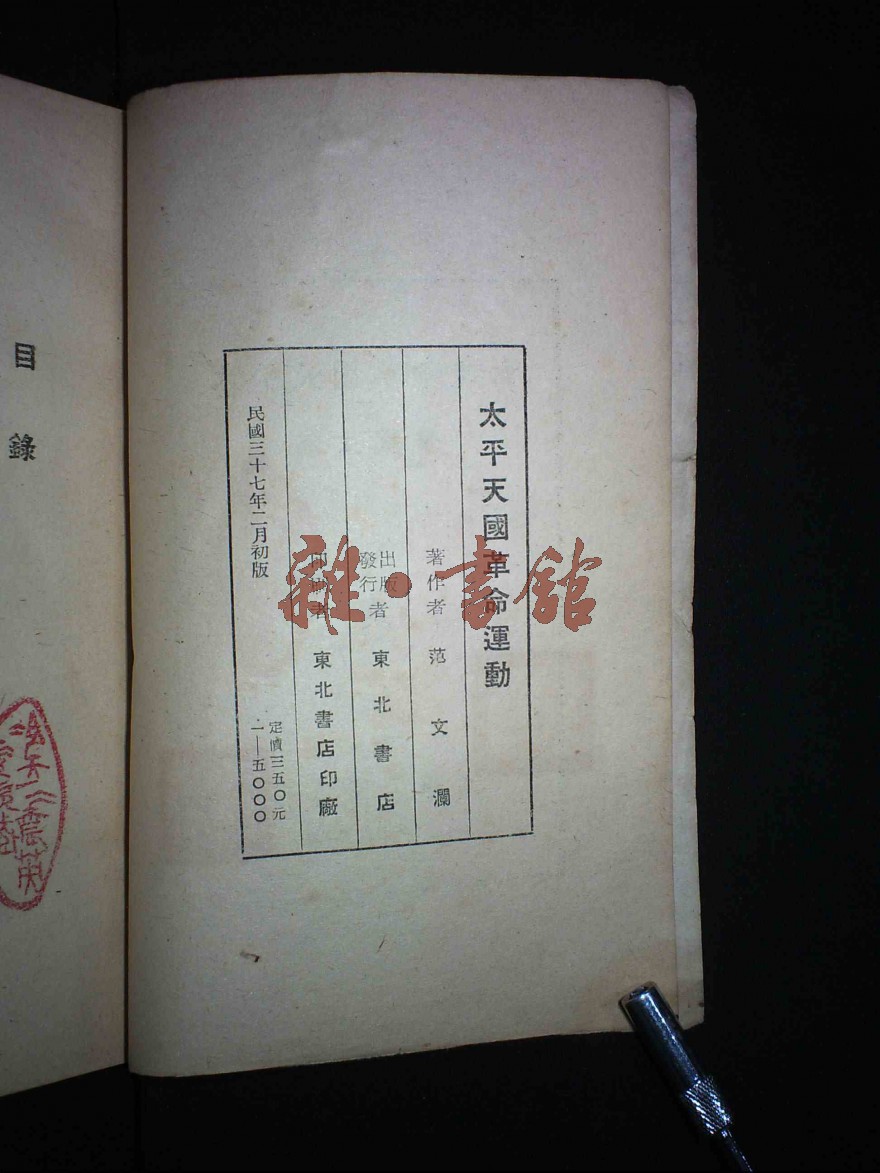 太平天國革命運動
著作者 范文瀾
出版
發行
者 東北書店
印刷者 東北書店印廠
定價三五〇元
民國三十七年二月初版 一—五〇〇〇
雜·書館
目錄